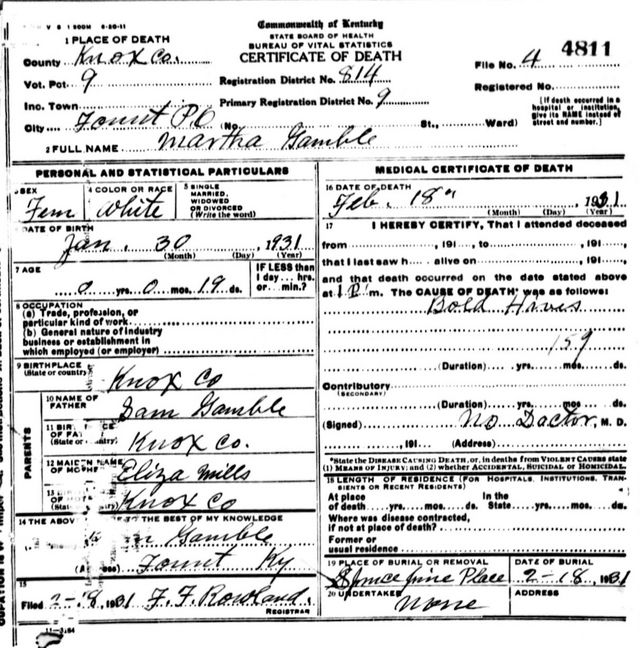 V S 1 500M 6-20-11
Commonwealth of Kentucky
STATE BOARD OF HEALTH
BUREAU OF VITAL STATISTICS
CERTIFICATE OF DEATH
1 PLACE OF DEATH
County Knox Co.
Vot. Pct 9
Inc. Town
City Fount P.O (No. St., Ward)
Registration District No. 814
Primary Registration District No. 9
File No. 4 4811
Registered No.
[If death occurred in a hospital or institution, give its NAME instead of street and number.]
2 FULL NAME Martha Gamble
PERSONAL AND STATISTICAL PARTICULARS
3 SEX Fem
4 COLOR OR RACE White
5 SINGLE MARRIED, WIDOWED OR DIVORCED (Write the word)
DATE OF BIRTH
Jan. 30, 1931
(Month) (Day) (Year)
7 AGE
0 yrs. 0 mos. 19 ds.
IF LESS than 1 day... hrs. or... min.?
8 OCCUPATION
(a) Trade, profession, or particular kind of work
(b) General nature of industry business or establishment in which employed (or employer)
9 BIRTHPLACE (State or country) Knox Co
PARENTS
10 NAME OF FATHER Sam Gamble
Knox Co.
12 MAIDEN NAME OF MOTHER Eliza Mills
Knox Co
14 THE ABOV TO THE BEST OF MY KNOWLEDGE
Gamble
Fount Ky
15
Filed 2-18, 1931 F. F. Rowland.
REGISTRAR
11-3.64
MEDICAL CERTIFICATE OF DEATH
16 DATE OF DEATH
Feb. 18", 1931
(Month) (Day) (Year)
17 I HEREBY CERTIFY, That I attended deceased
from, 191, to, 191,
that I last saw h alive on, 191,
and that death occurred on the date stated above
at 1 P. m. The CAUSE OF DEATH* was as follows:
Bold Hives
159
(Duration) yrs. mos. ds.
Contributory
(SECONDARY)
(Duration) yrs. mos. ds.
(Signed) No Doctor, M. D.
, 191 (Address)
*State the DISEASE CAUSING DEATH, or, in deaths from VIOLENT CAUSES state (1) MEANS OF INJURY; and (2) whether ACCIDENTAL, SUICIDAL or HOMICIDAL.
18 LENGTH OF RESIDENCE (FOR HOSPITALS, INSTITUTIONS, TRANSIENTS OR RECENT RESIDENTS)
At place of death yrs. mos. ds. In the State yrs. mos. ds.
Where was disease contracted, if not at place of death?
Former or usual residence
19 PLACE OF BURIAL OR REMOVAL
Spruce Pine Place
DATE OF BURIAL
2-18, 1931
20 UNDERTAKER
None
ADDRESS